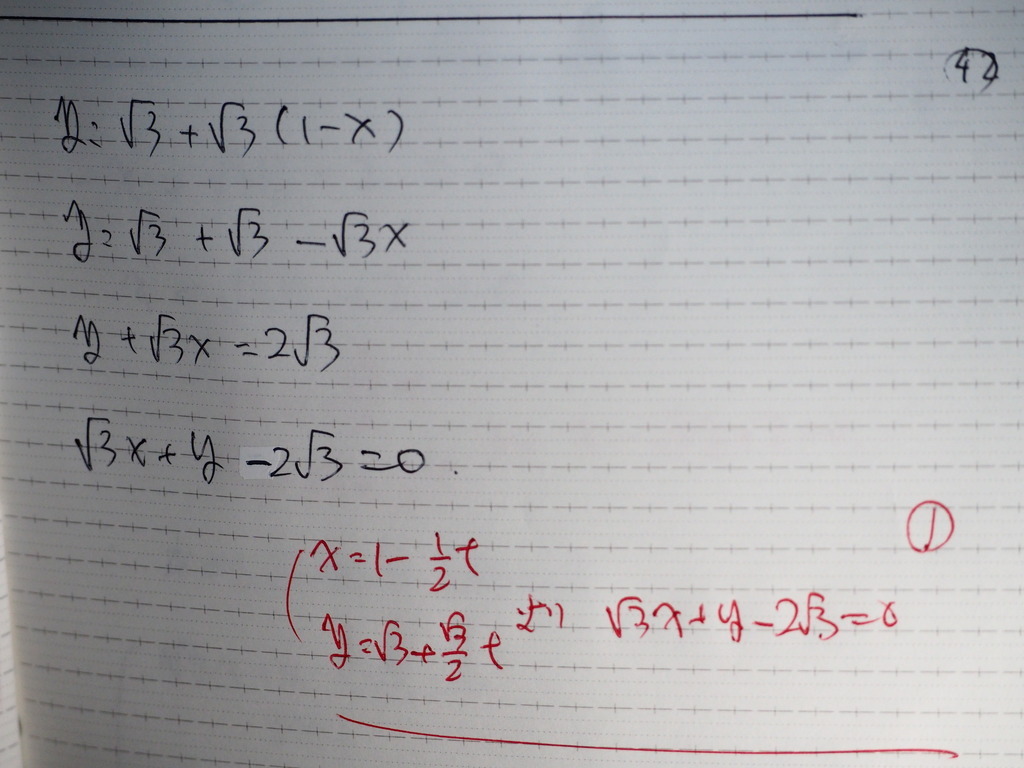 42
y=√3+√3(1-x)
y=√3+√3-√3x
y+√3x=2√3
√3x+y-2√3=0.
①
x=1-1/2t
y=√3+√3/2t より √3x+y-2√3=0